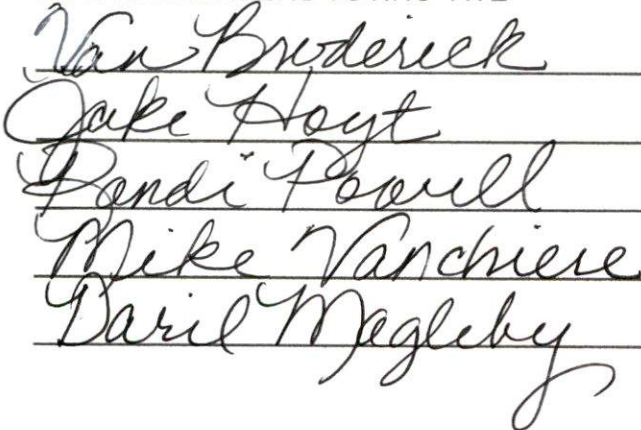 Van Broderick
Jake Hoyt
Randi Powell
Mike Vanchiere
Daril Magleby